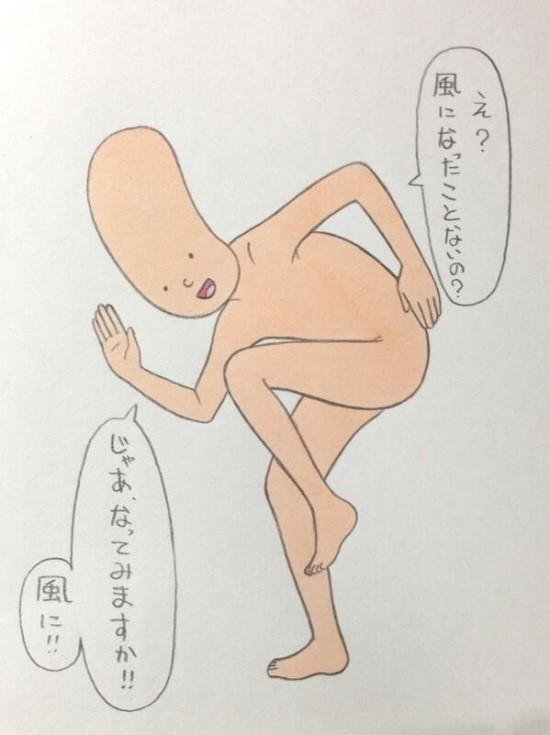 え?
風になったことないの?
じゃあ、なってみますか!!
風に!!